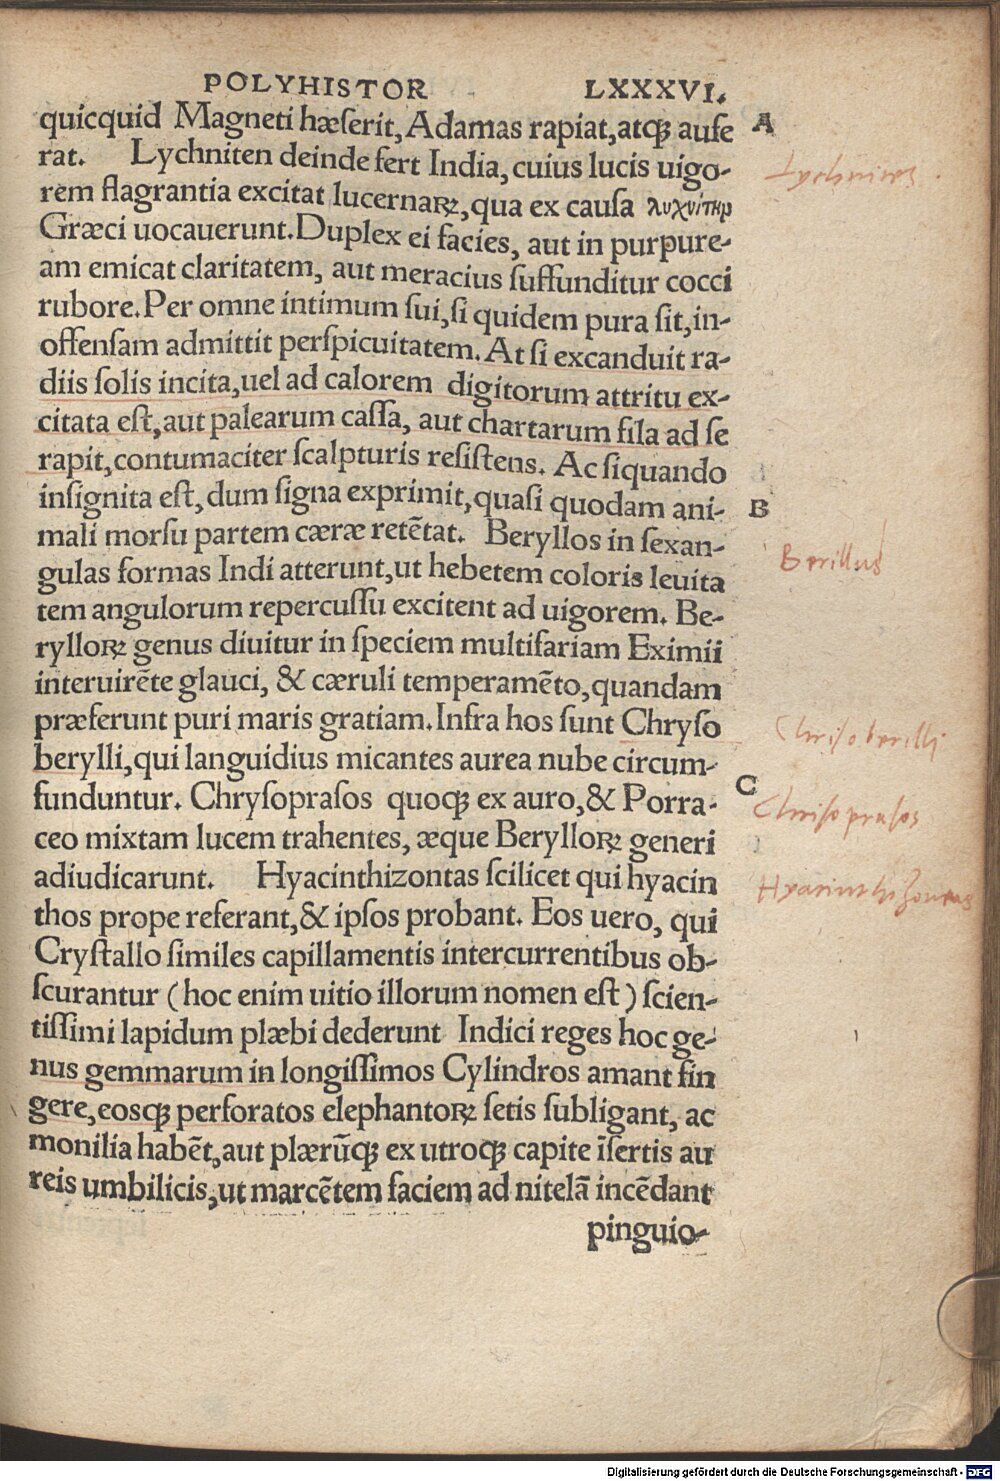 POLYHISTOR LXXXVI.
quicquid Magneti hæſerit, Adamas rapiat, atqꝫ aufe A
rat. Lychniten deinde fert India, cuius lucis uigo-
Lychnites
rem flagrantia excitat lucernaꝝ, qua ex cauſa λυχνίτηρ
Græci uocauerunt. Duplex ei facies, aut in purpure-
am emicat claritatem, aut meracius ſuffunditur cocci
rubore. Per omne intimum ſui, ſi quidem pura ſit, in-
offenſam admittit perſpicuitatem. At ſi excanduit ra-
diis ſolis incita, uel ad calorem digitorum attritu ex-
citata eſt, aut palearum caſſa, aut chartarum fila ad ſe
rapit, contumaciter ſcalpturis reſiſtens. Ac ſiquando
inſignita eſt, dum ſigna exprimit, quaſi quodam ani- B
mali morſu partem cæræ retẽtat. Beryllos in ſexan-
Berillus
gulas formas Indi atterunt, ut hebetem coloris leuita
tem angulorum repercuſſu excitent ad uigorem. Be-
rylloꝝ genus diuitur in ſpeciem multifariam Eximii
interuirẽte glauci, & cæruli temperamẽto, quandam
præferunt puri maris gratiam. Infra hos ſunt Chryſo
Chriſoberilli
berylli, qui languidius micantes aurea nube circum-
funduntur. Chryſopraſos quoqꝫ ex auro, & Porra- C
Chriſopraſos
ceo mixtam lucem trahentes, æque Berylloꝝ generi
adiudicarunt. Hyacinthizontas ſcilicet qui hyacin
Hyacinthizontas
thos prope referant, & ipſos probant. Eos uero, qui
Cryſtallo ſimiles capillamentis intercurrentibus ob-
ſcurantur (hoc enim uitio illorum nomen eſt) ſcien-
tiſſimi lapidum plæbi dederunt Indici reges hoc ge-
nus gemmarum in longiſſimos Cylindros amant fin
gere, eosqꝫ perforatos elephantoꝝ ſetis ſubligant, ac
monilia habẽt, aut plærũqꝫ ex utroqꝫ capite ĩſertis au
reis umbilicis, ut marcẽtem faciem ad nitelã incẽdant
pinguio-
Digitalisierung gefördert durch die Deutsche Forschungsgemeinschaft - DFG